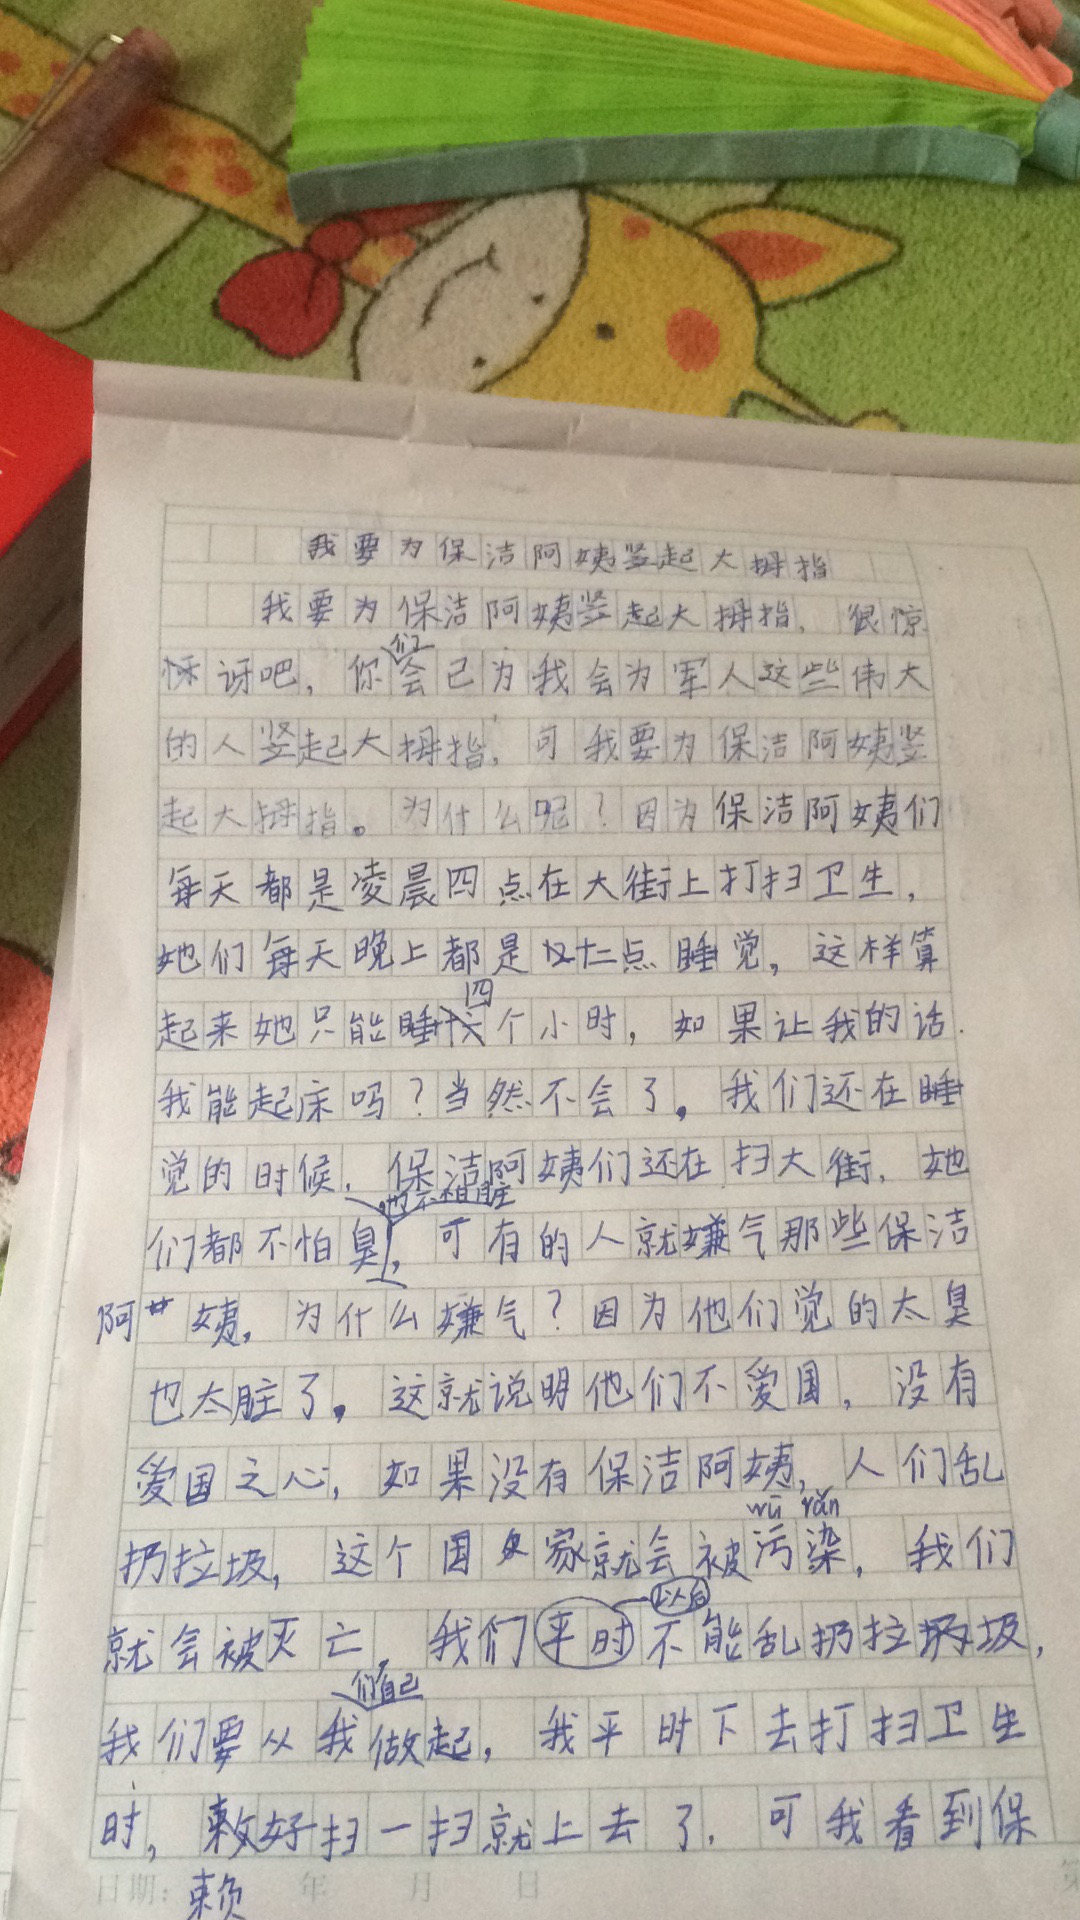 我要为保洁阿姨竖起大拇指
我要为保洁阿姨竖起大拇指，很惊
讶吧，你们会己为我会为军人这些伟大
的人竖起大拇指，可我要为保洁阿姨竖
起大拇指。为什么呢？因为保洁阿姨们
每天都是凌晨四点在大街上打扫卫生，
她们每天晚上都是十二点睡觉，这样算
起来她只能睡四个小时，如果让我的话
我能起床吗？当然不会了。我们还在睡
觉的时候，保洁阿姨们还在扫大街，她
们都不怕臭，也不怕脏，可有的人就嫌气那些保洁
阿姨，为什么嫌气？因为他们觉的太臭
也太脏了。这就说明他们不爱国，没有
爱国之心，如果没有保洁阿姨，人们乱
wū rǎn
扔拉圾，这个国家就会被污染，我们
就会被灭亡，我们平时以后不能乱扔拉圾，
我们要从我们自己做起，我平时下去打扫卫生
时，好扫一扫就上去了，可我看到保
日期： 年 月 日
赖